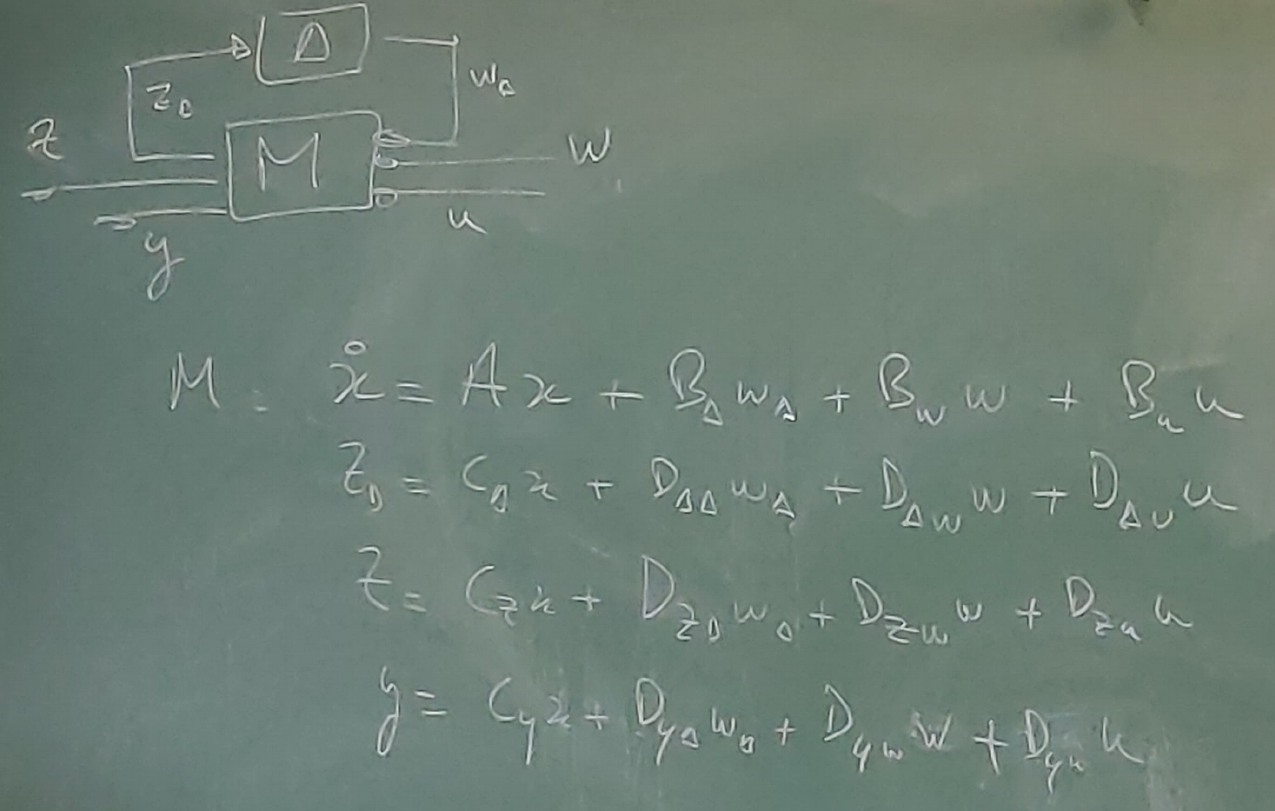 Δ
z_Δ
w_Δ
z
M
w
u
y
M: ẋ = A x + B_Δ w_Δ + B_w w + B_u u
z_Δ = C_Δ x + D_ΔΔ w_Δ + D_Δw w + D_Δu u
z = C_z x + D_zΔ w_Δ + D_zw w + D_zu u
y = C_y x + D_yΔ w_Δ + D_yw w + D_yu u